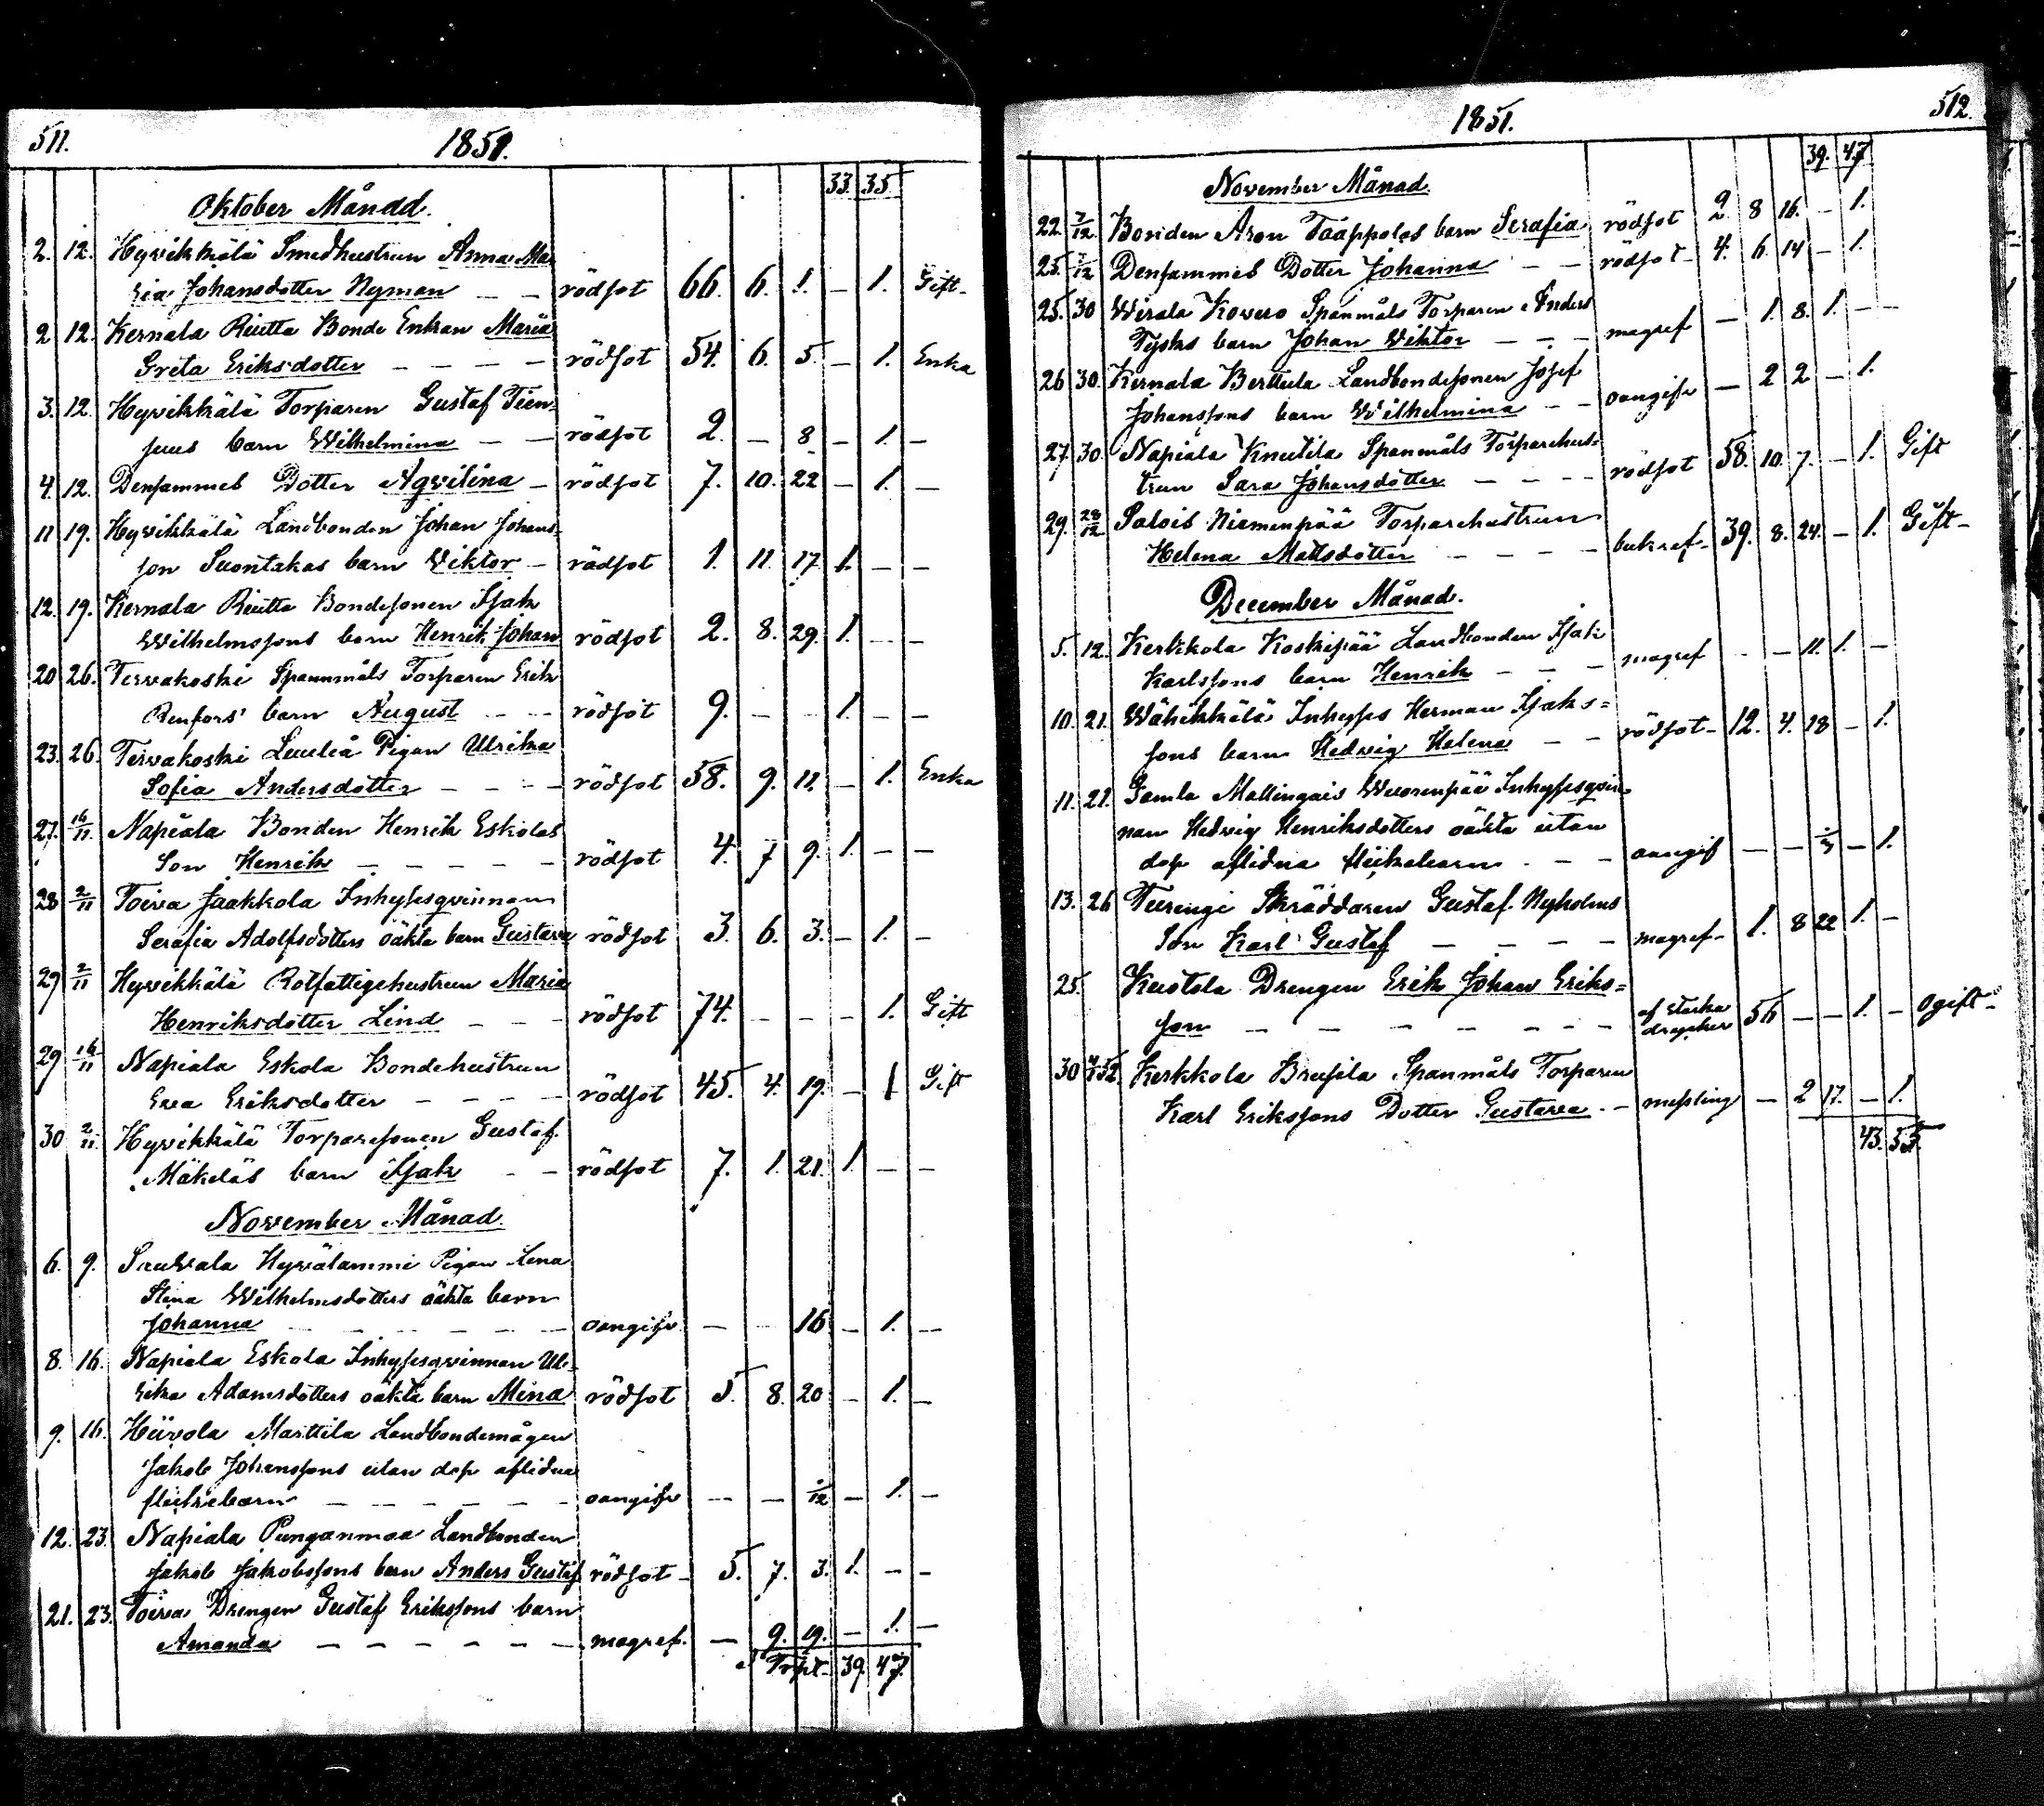 511.
1851.
33. 35.
Oktober Månad.
2. 12. Hyvikkälä Smedhustrun Anna Ma-
ria Johansdotter Nyman — — rödsot 66. 6. 1. — 1. Gift-
2 12. Kernala Riutta Bonde Enkan Maria
Greta Eriksdotter — — — — rödsot 54. 6. 5. — 1. Enka
3. 12. Hyvikkälä Torparen Gustaf Tien-
suus barn Wilhelmina — — rödsot 2. — 8 — 1. —
4. 12. Densammes Dotter Aqvilina — rödsot 7. 10. 22 — 1. —
11 19. Hyvikkälä Landbonden Johan Johans-
son Suontakas barn Viktor — rödsot 1. 11. 17. 1. — —
12. 19. Kernala Riutta Bondesonen Isak
Wilhelmssons barn Henrik Johan rödsot 2. 8. 29. 1. — —
20 26. Tervakoski Spannmåls Torparen Erik
Renfors' barn August — — rödsot 9. — — 1. — —
23. 26. Tervakoski Pigan Ulrika
Sofia Andersdotter — — — — rödsot 58. 9. 11. — 1. Enka
27. 16/11 Napiala Bonden Henrik Eskolas
Son Henrik — — — — — rödsot 4. 7 9. 1. — —
28 2/11 Toiva Jaakkola Inhysesqvinnan
Serafia Adolfsdotters oäkta barn Gustava rödsot 3. 6. 3. — 1. —
29 2/11 Hyvikkälä Rotfattighustrun Maria
Henriksdotter Lind — — — rödsot 74. — — — 1. Gift
29 16/11 Napiala Eskola Bondehustrun
Eva Eriksdotter — — — — rödsot 45. 4. 19. — 1 Gift
30 2/11. Hyvikkälä Torparesonen Gustaf
Mäkeläs barn Isak — — rödsot 7. 1. 21. 1. — —
November Månad.
6. 9. Sauvala Hyvälammi Pigan Lena
Stina Wilhelmsdotters oäkta barn
Johanna — — — — — — oangifv. — — 16 — 1. —
8. 16. Napiala Eskola Inhysesqvinnan Ul-
rika Adamsdotters oäkta barn Mina rödsot 5. 8. 20 — 1. —
9. 16. Hiivola Marttila Landbondemågen
Jakob Johanssons utan dop aflidna
flickebarn — — — — — — oangifv — — 1/12 — 1. —
12. 23. Napiala Punganmaa Landbonden
Jakob Jakobssons barn Anders Gustaf rödsot — 5. 7. 3. 1. — —
21. 23. Toiva Drengen Gustaf Erikssons barn
Amanda — — — — — — magref. — 9. 19. — 1. —
Trpt. 39. 47.
1851.
512.
39. 47
November Månad.
22. 7/12 Bonden Aron Taappolas barn Serafia rödsot 2. 8 16. — 1.
25. 7/12 Densammes Dotter Johanna — — rödsot 4. 6. 14 — 1.
25. 30 Wirala Kovero Spanmåls Torparen Anders
Tysks barn Johan Viktor — — — magref — 1. 8. 1. — —
26 30. Kernala Berttula Landbondesonen Josef
Johanssons barn Wilhelmina — — oangifv — 2 2 — 1.
27. 30. Napiala Knutila Spanmåls Torparehus-
trun Sara Johansdotter — — — — rödsot 58. 10. 7. — 1. Gift
29. 28/12 Salois Niemenpää Torparehustrun
Helena Mattsdotter — — — — bukref- 39. 8. 24. — 1. Gift-
December Månad.
5. 12. Kerkkola Koskipää Landbonden Isak
Karlssons barn Henrik — — — magref — — 11. 1. —
10. 21. Wähikkälä Inhyses Herman Isaks-
sons barn Hedvig Helena — — rödsot- 12. 4. 18 — 1.
11. 21. Gamla Mallingais Wuorenpää Inhysesqvin-
nan Hedvig Henriksdotters oäkta utan
dop aflidna flickebarn — — — oangif — — 1/3 — 1.
13. 26 Turengi Skräddaren Gustaf Nyholms
Son Karl Gustaf — — — — magref- 1. 8 22 1. —
25. Kustola Drengen Erik Johan Eriks-
son — — — — — — — af starka drycker 56 — — 1. — Ogift-
30 Kerkkola Brusila Spanmåls Torparen
Karl Erikssons Dotter Gustava — messling — 2 17. — 1.
43. 53.